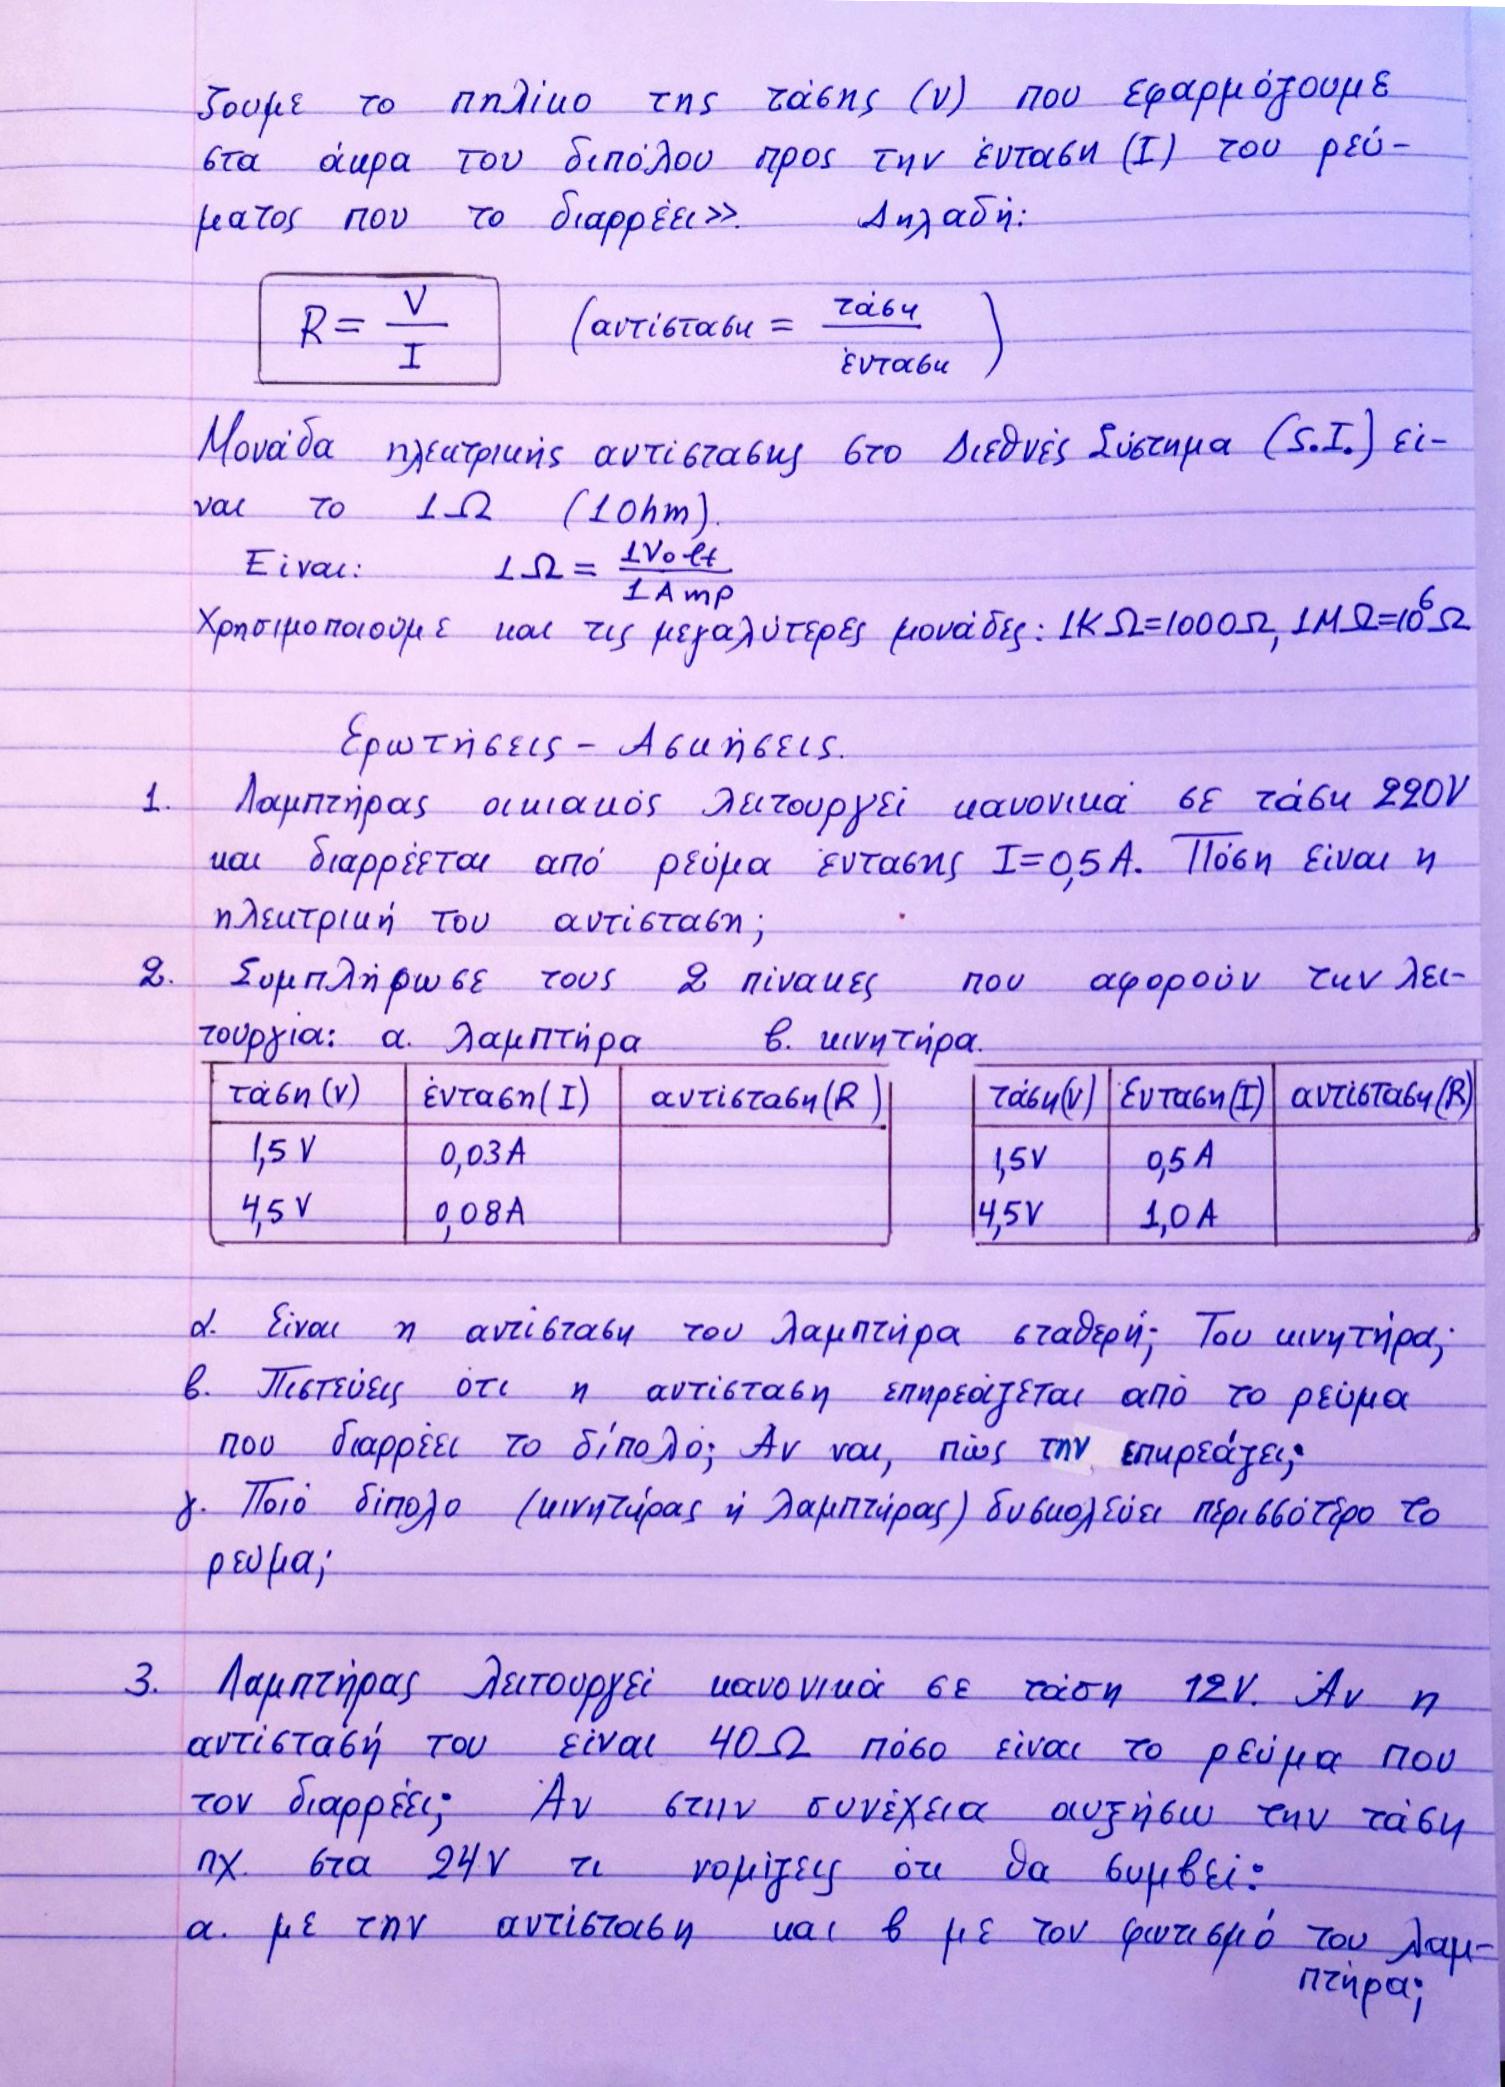 ζουμε το πηλίκο της τάσης (V) που εφαρμόζουμε
στα άκρα του διπόλου προς την ένταση (I) του ρεύ-
ματος που το διαρρέει». Δηλαδή:
R = V/I (αντίσταση = τάση/ένταση)
Μονάδα ηλεκτρικής αντίστασης στο Διεθνές Σύστημα (S.I.) εί-
ναι το 1Ω (1Ohm).
Είναι: 1Ω = 1Volt/1Amp
Χρησιμοποιούμε και τις μεγαλύτερες μονάδες: 1KΩ=1000Ω, 1MΩ=10⁶Ω
Ερωτήσεις - Ασκήσεις.
1. Λαμπτήρας οικιακός λειτουργεί κανονικά σε τάση 220V
και διαρρέεται από ρεύμα έντασης I=0,5A. Πόση είναι η
ηλεκτρική του αντίσταση;
2. Συμπλήρωσε τους 2 πίνακες που αφορούν την λει-
τουργία: α. λαμπτήρα β. κινητήρα.
τάση(V) ένταση(I) αντίσταση(R) τάση(V) ένταση(I) αντίσταση(R)
1,5V 0,03A 1,5V 0,5A
4,5V 0,08A 4,5V 1,0A
α. Είναι η αντίσταση του λαμπτήρα σταθερή; Του κινητήρα;
β. Πιστεύεις ότι η αντίσταση επηρεάζεται από το ρεύμα
που διαρρέει το δίπολό; Αν ναι, πώς την επηρεάζει;
γ. Ποιό δίπολο (κινητήρας ή λαμπτήρας) δυσκολεύει περισσότερο το
ρευμα;
3. Λαμπτήρας λειτουργεί κανονικά σε τάση 12V. Αν η
αντίστασή του είναι 40Ω πόσο είναι το ρεύμα που
τον διαρρέει; Αν στην συνέχεια αυξήσω την τάση
πχ. στα 24V τι νομίζεις ότι θα συμβεί:
α. με την αντίσταση και β με τον φωτισμό του λαμ-
πτήρα;